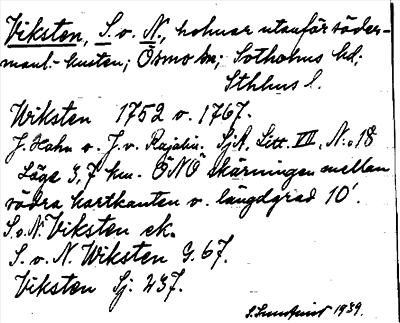 Viksten, S. o. N., holmar utanför söder-
manl.-kusten; Ösmo sn; Sotholms hd;
Sthlms l.
Wiksten 1752 o. 1767.
J. Hahn o. J. v. Rajalin. SjA, Litt. VII, N:o 18
Läge 3,7 km. ÖNÖ skärningen mellan
södra kartkanten o. längdgrad 10'.
S. o. N. Viksten ek.
S. o. N. Wiksten G. 67.
Viksten Sj. 237.
1939.